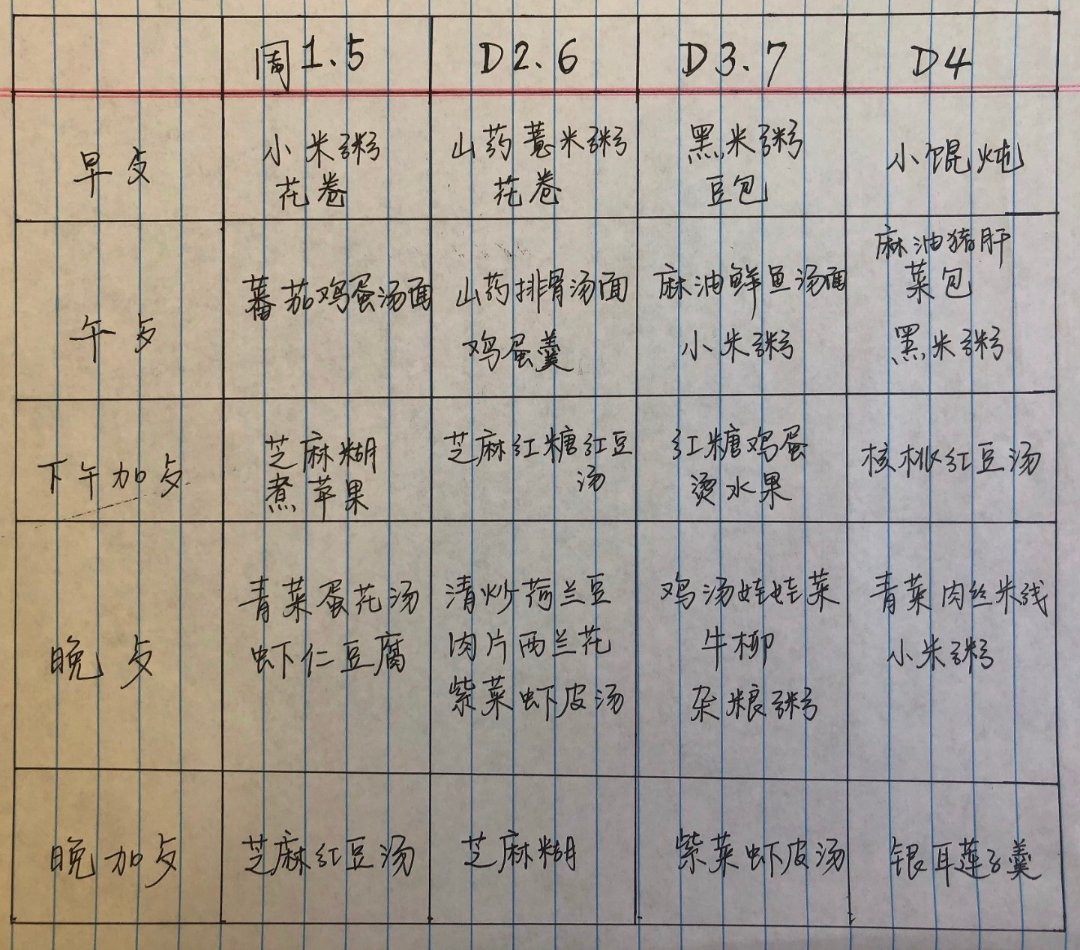 周1.5
D2.6
D3.7
D4
早歺
小米粥
花卷
山药薏米粥
花卷
黑米粥
豆包
小馄炖
午歺
蕃茄鸡蛋汤面
山药排骨汤面
鸡蛋羹
麻油鲜鱼汤面
小米粥
麻油猪肝
菜包
黑米粥
下午加歺
芝麻糊
煮苹果
芝麻红糖红豆
汤
红糖鸡蛋
烫水果
核桃红豆汤
晚歺
青菜蛋花汤
虾仁豆腐
清炒荷兰豆
肉片西兰花
紫菜虾皮汤
鸡汤娃娃菜
牛柳
杂粮粥
青菜肉丝米线
小米粥
晚加歺
芝麻红豆汤
芝麻糊
紫菜虾皮汤
银耳莲子羹